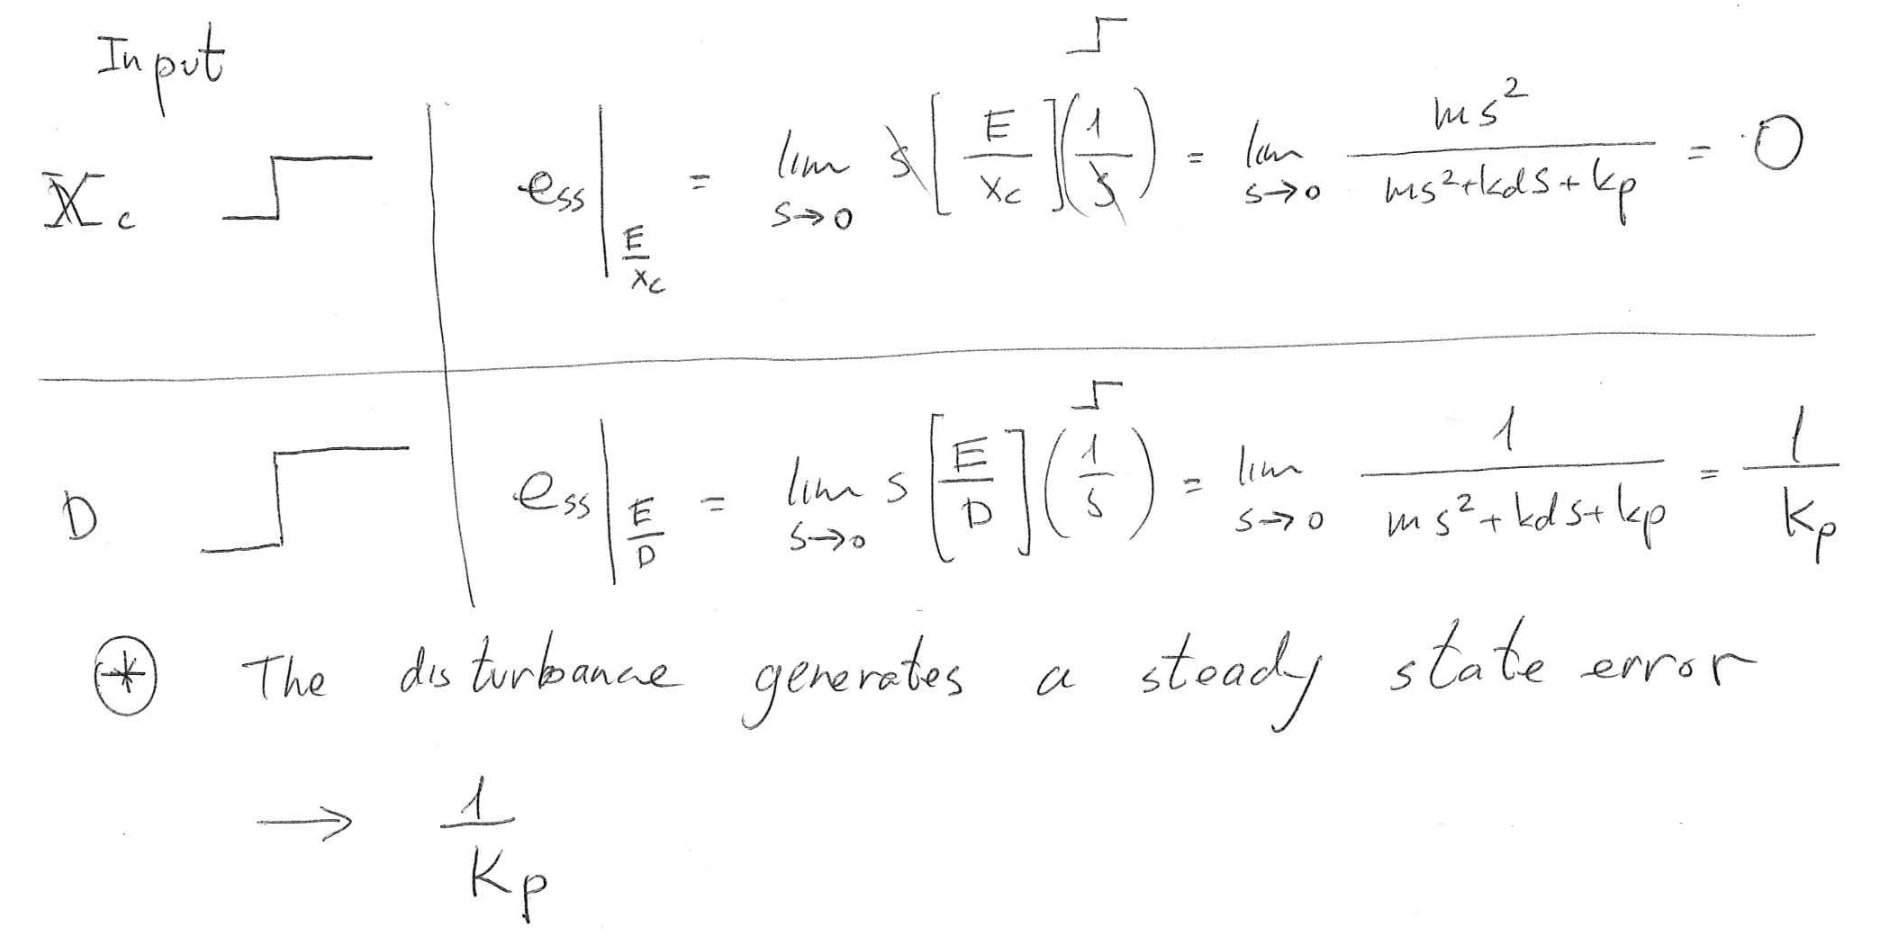 Input
X_c e_ss |_{E/X_c} = lim_{s→0} s [E/X_c] (1/s) = lim_{s→0} ms²/(ms²+kds+kp) = 0
D e_ss |_{E/D} = lim_{s→0} s [E/D] (1/s) = lim_{s→0} 1/(ms²+kds+kp) = 1/Kp
* The disturbance generates a steady state error
→ 1/Kp